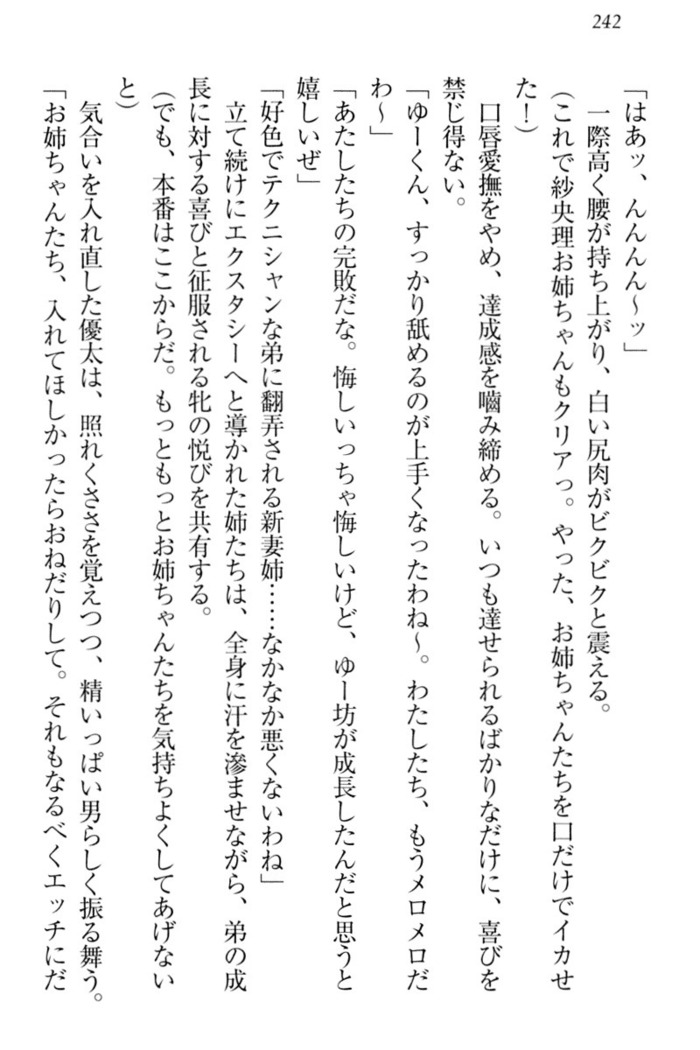 242
「はあッ、んんんん～ッ」
一際高く腰が持ち上がり、白い尻肉がビクビクと震える。
（これで紗央理お姉ちゃんもクリアっ。やった、お姉ちゃんたちを口だけでイカせ
た！）
口唇愛撫をやめ、達成感を嚙み締める。いつも達せられるばかりなだけに、喜びを
禁じ得ない。
「ゆーくん、すっかり舐めるのが上手くなったわね～。わたしたち、もうメロメロだ
わ～」
「あたしたちの完敗だな。悔しいっちゃ悔しいけど、ゆー坊が成長したんだと思うと
嬉しいぜ」
「好色でテクニシャンな弟に翻弄される新妻姉……なかなか悪くないわね」
立て続けにエクスタシーへと導かれた姉たちは、全身に汗を滲ませながら、弟の成
長に対する喜びと征服される牝の悦びを共有する。
（でも、本番はここからだ。もっともっとお姉ちゃんたちを気持ちよくしてあげない
と）
気合いを入れ直した優太は、照れくささを覚えつつ、精いっぱい男らしく振る舞う。
「お姉ちゃんたち、入れてほしかったらおねだりして。それもなるべくエッチにだ